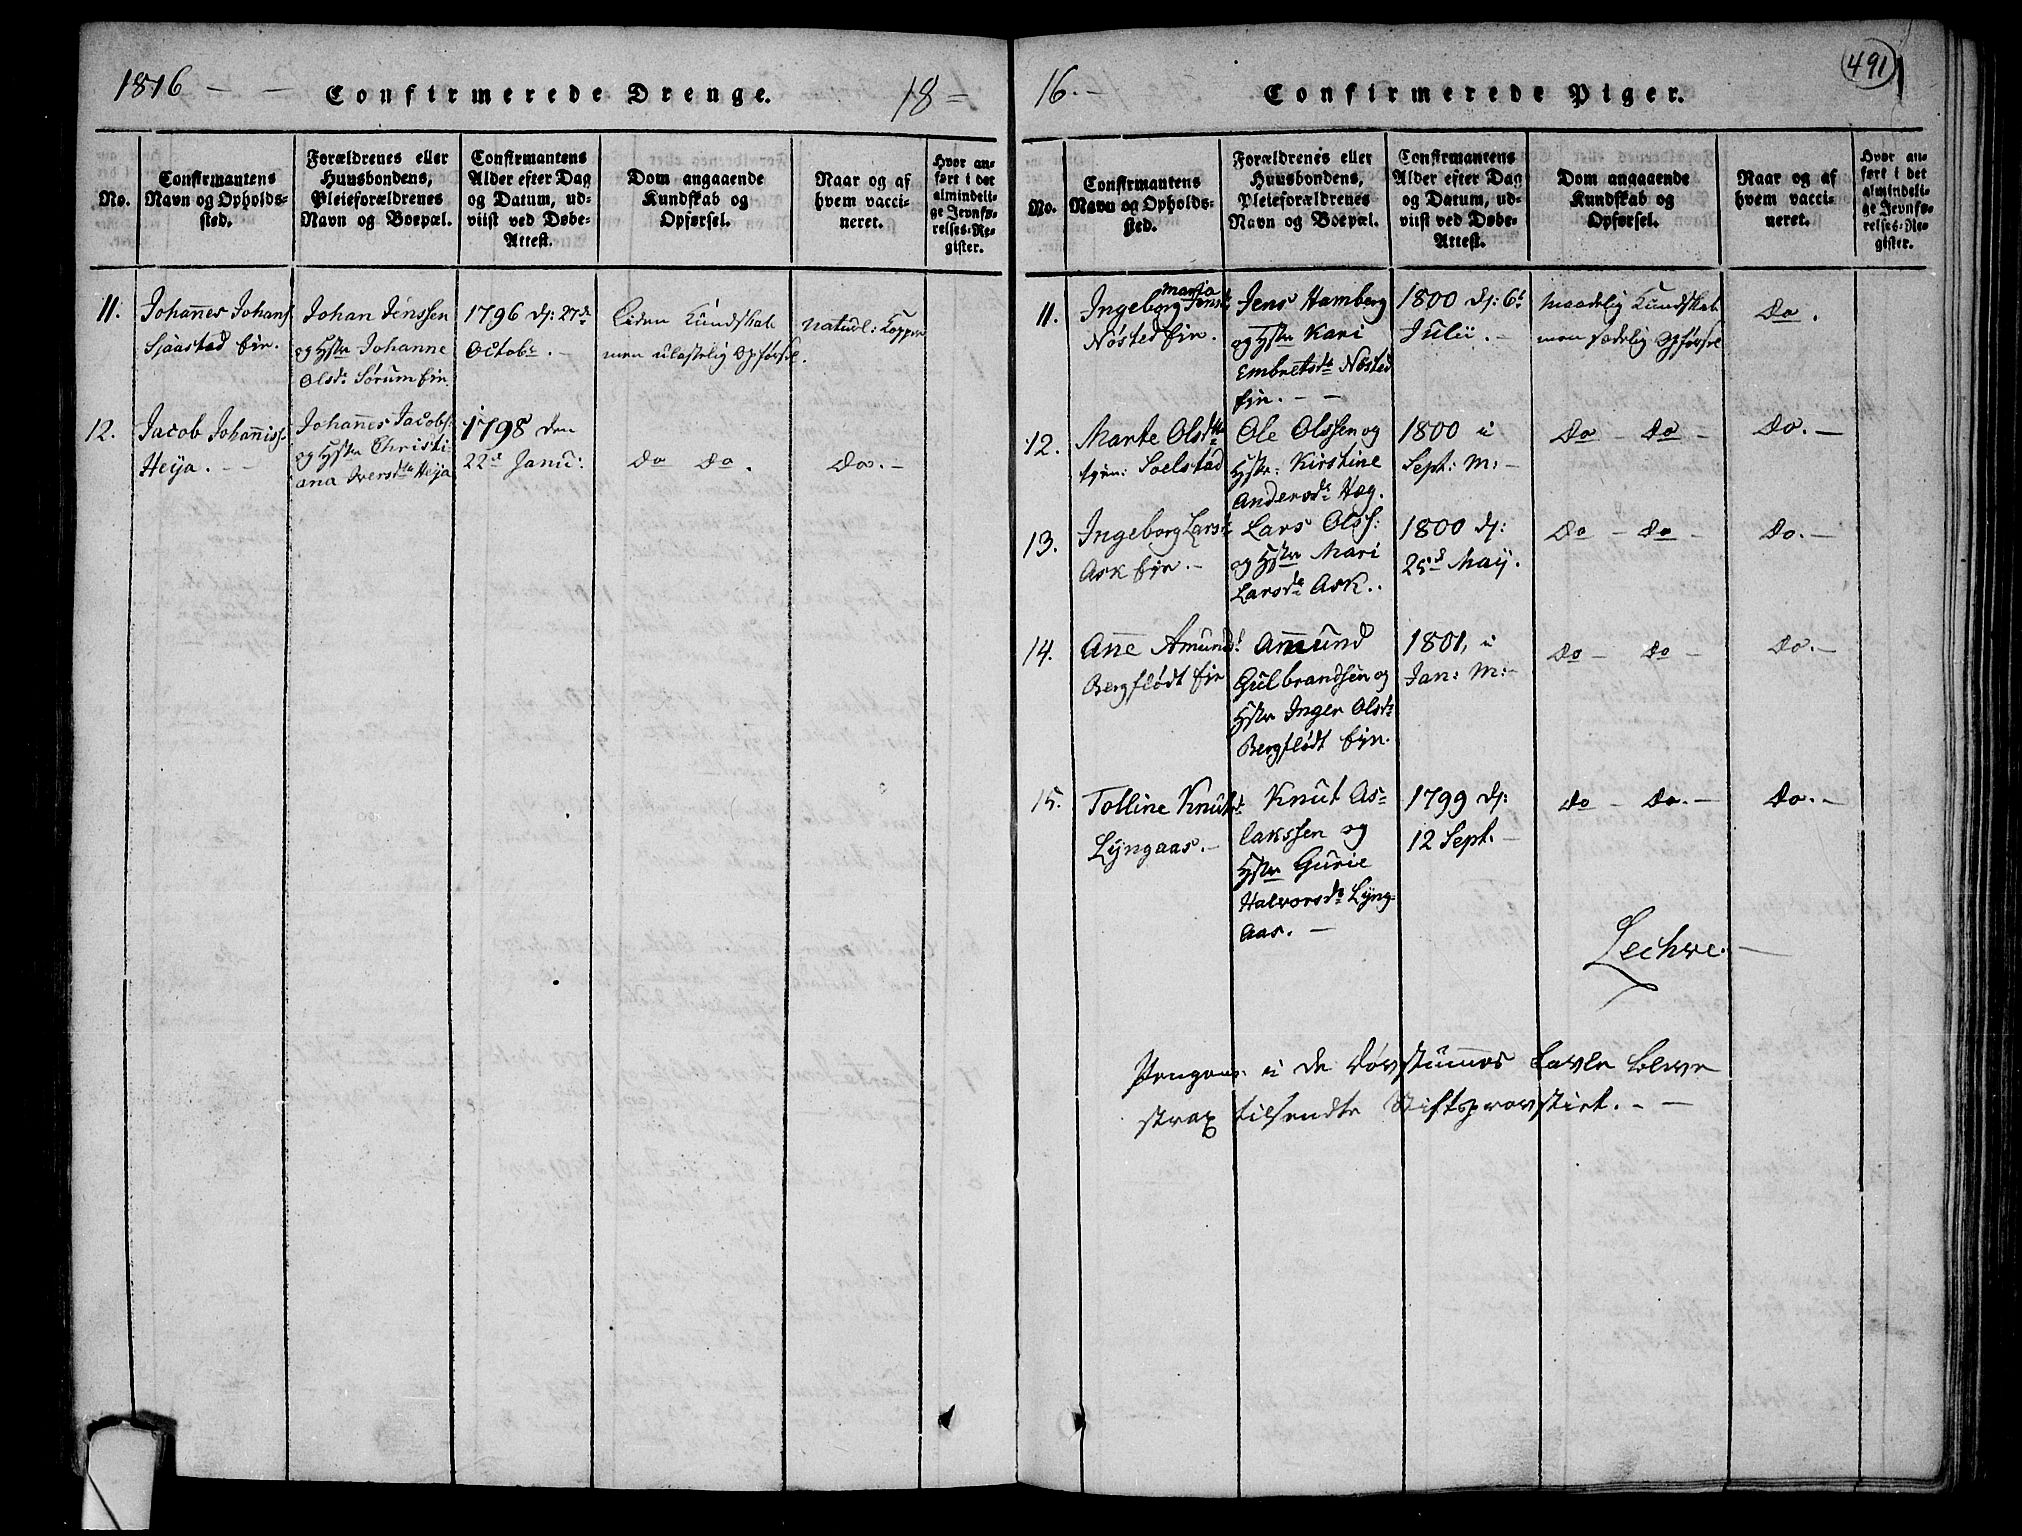 1816 - -
Confirmerede Drenge.
18 =
No.
Confirmantens
Navn og Opholds-
sted.
Forældrenes eller
Huusbondens,
Pleieforældrenes
Navn og Boepæl.
Confirmantens
Alder efter Dag
og Datum, ud-
viist ved Døbe-
Attest.
Dom angaaende
Kundskab og
Opførsel.
Naar og af
hvem vacci-
neret.
Hvor an-
ført i det
almindeli-
ge Jevnfø-
relses-Re-
gister.
11.
Johannes Johans
Sjaastad Eir.
Johan Jenssen
og Hstr Johanne
Olsd. Sørum Eir
1796 d: 27de
Octobr. -
Liden Kundskab
men ulastelig Opførsel.
Naturl: Kopper
12.
Jacob Johanness:
Heija. - -
Johannes Jacobs:
og Hstr Christi-
ana Iversda Heija
1798 den
22d Janu:
do do.
do. -
16. -
Confirmerede Piger.
491
No.
Confirmantens
Navn og Opholds-
sted.
Forældrenes eller
Huusbondens,
Pleieforældrenes
Navn og Boepæl.
Confirmantens
Alder efter Dag
og Datum, ud-
viist ved Døbe-
Attest.
Dom angaaende
Kundskab og
Opførsel.
Naar og af
hvem vacci-
neret.
Hvor an-
ført i det
almindeli-
ge Jevnfø-
relses-Re-
gister.
11.
Maria
Ingeborg Jensd:
Nøsted Eir.
Jens Hamberg
og Hstr Kari
Embretsda Nøsted
Eir. - -
1800 d: 6t
Julii. -
Maadelig Kundskab
men sædelig Opførsel
do.
12.
Marte Olsdtr
Soelstad
Ole Olssen og
Hstr: Kirstine
Andersd: Hæg.
1800 i
Sept: M: -
do - do -
do. -
13.
Ingeborg Larsd:
Ask Eir. -
Lars Olss:
og Hstr Mari
Larsda Ask.
1800 d:
25d Maij.
do - do -
do. -
14.
Anne Amunds:
Bergflødt Eir
Amund
Gulbrandsen og
Hstr Inger Olsd:
Bergflødt Eir.
1801, i
Jan: M: -
do - do -
do. -
15.
Tolline Knutsd:
Lyngaas. -
Knut As-
lakssen og
Hstr Gurie
Halvorsda Lyng-
aas. -
1799 d:
12 Sept. -
do - do. -
do. -
Lechve. -
Pengene i de Døvstummes Tavle bleve
strax tilsendte Stiftsprovstiet. - -